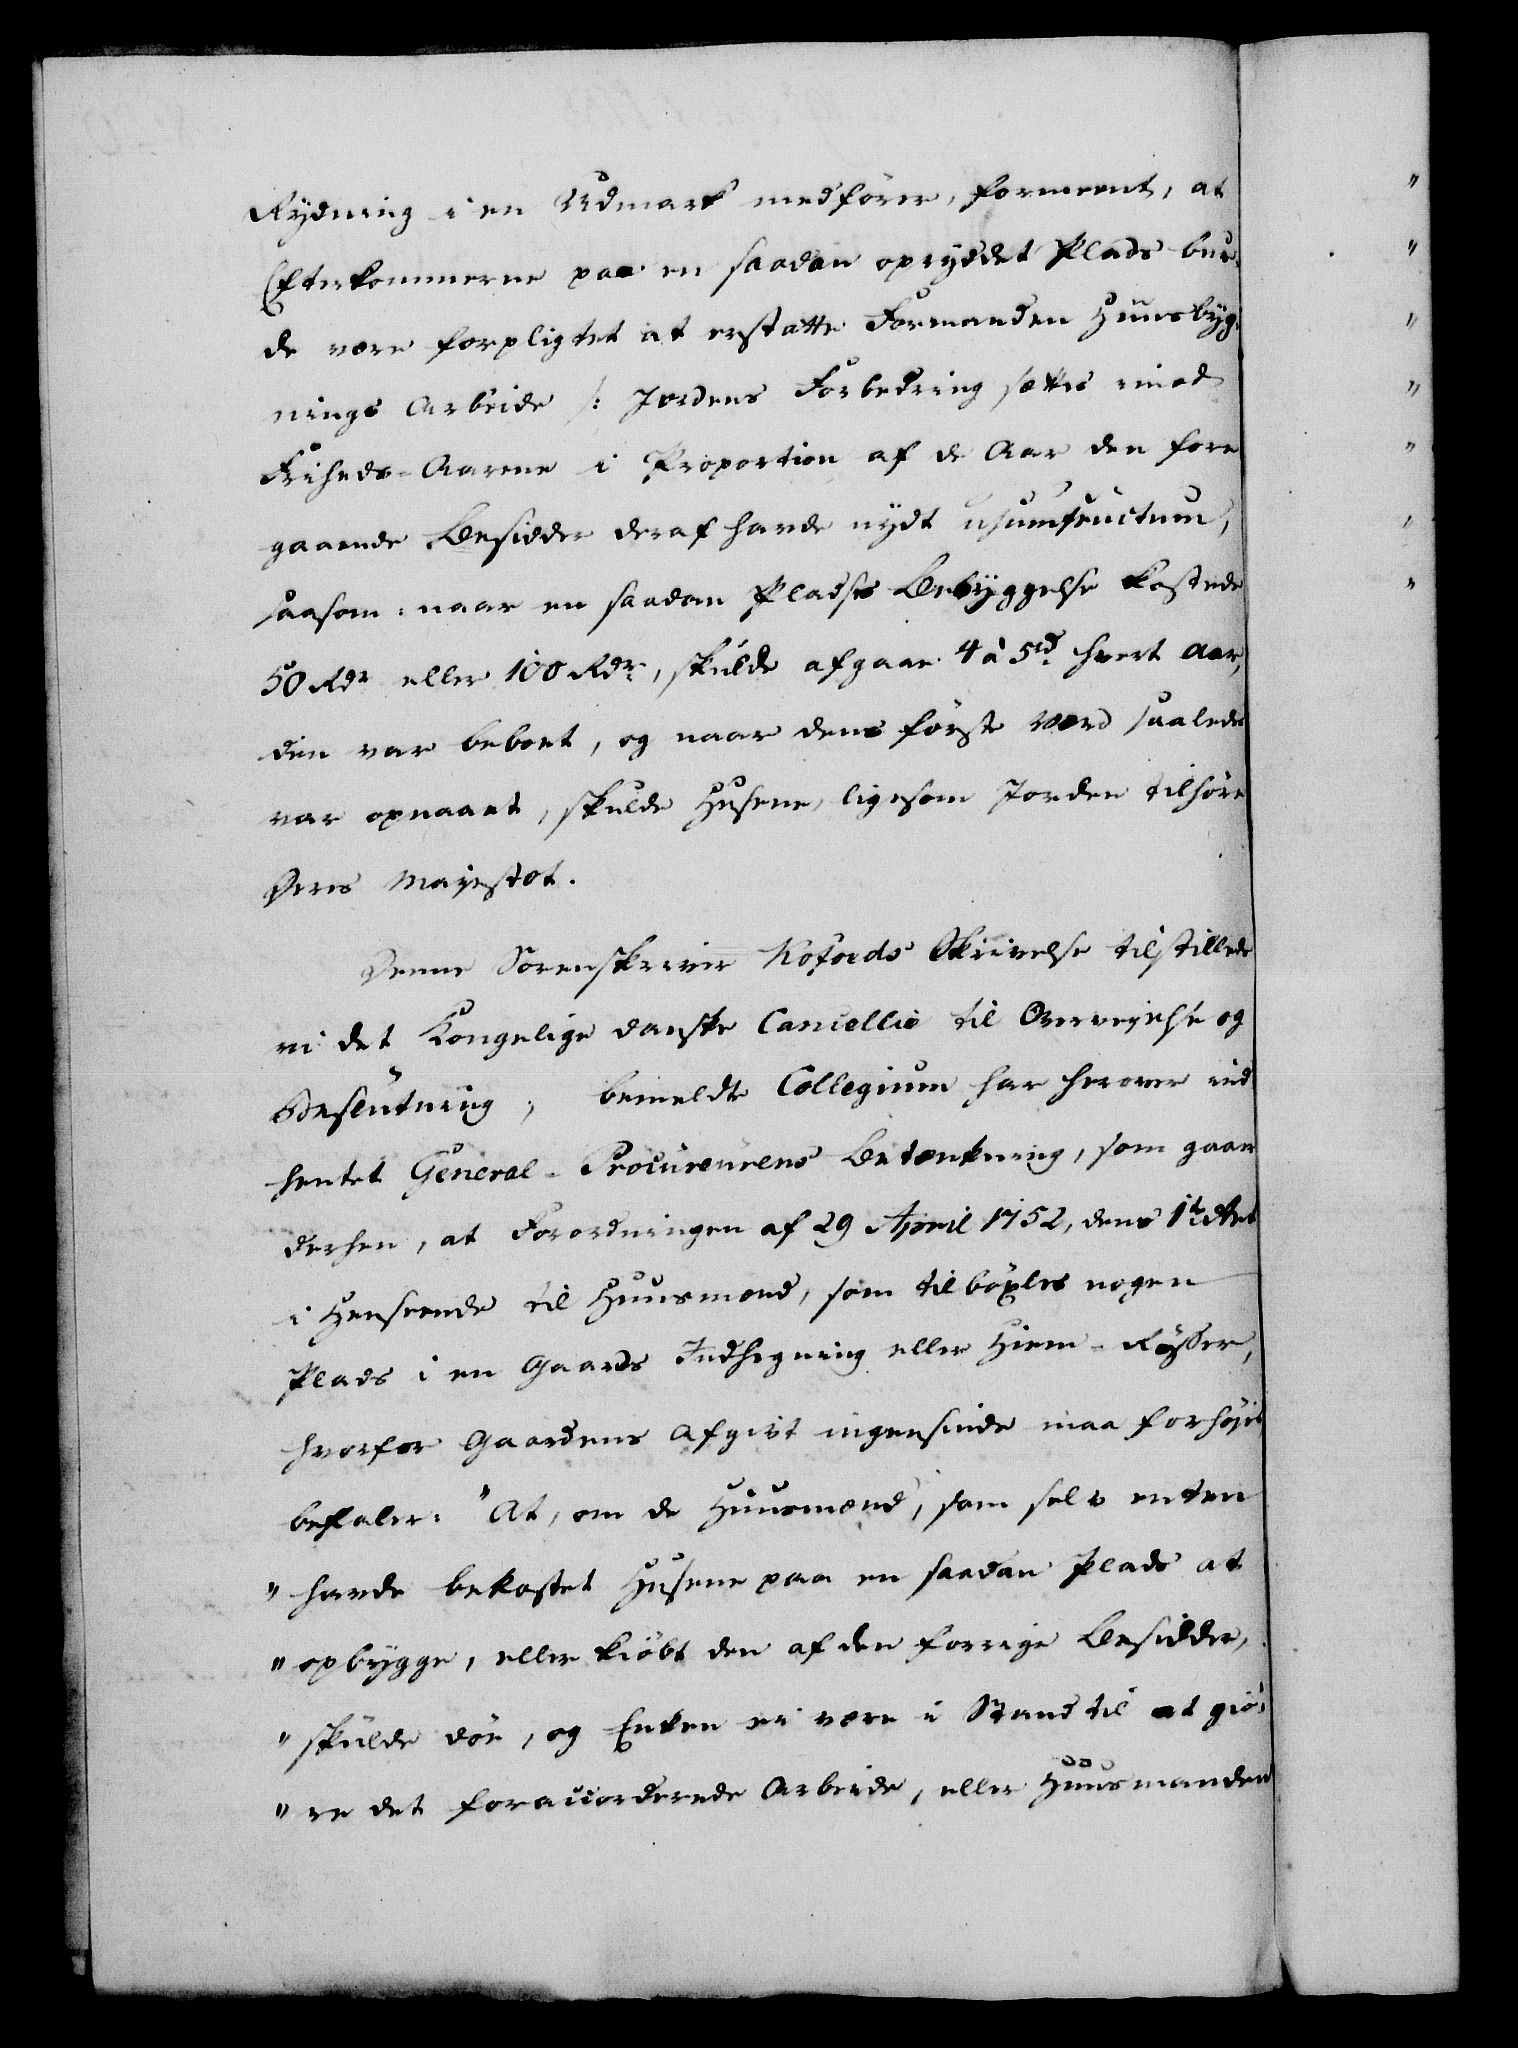 Rydning i en Udmark medfører, formeent, at
Efterkommerne paa en saadan opryddet Plads bur-
de være forpligtet at erstatte Formanden Huusbyg-
nings Arbeide /: Jordens Forbedring sættes imod
Friheds-Aarene i Proportion af de Aar den fore
gaaende Besidder deraf havde nydt usumfructum,
saasom: naar en saadan Pladses Bebyggelse kostede
50 Rdr eller 100 Rdr, skulde afgaae 4 à 5 rd hvert Aar,
den var beboet, og naar dens første Værd saaledes
var opnaaet, skulde Husene, ligesom Jorden tilhøre
Deres Majestæt.
Denne Sorenskriver Kofoeds Skrivelse tilstillede
vi det Kongelige danske Cancellie til Overvejelse og
Beslutning; bemeldte Collegium har herover ind
hentet General-Procureurens Betænkning, som gaaer
derhen, at Forordningen af 29 April 1752, dens 1te Art
i Henseende til Huusmænd, som tilbøxles nogen
Plads i en Gaards Indhegning eller Hiem-Røsser,
hvorfor Gaardens Afgivt ingensinde maa forhøjes
befaler: "At, om de Huusmænd, som selv enten
" havde bekostet Husene paa en saadan Plads at
" opbygge, eller kiøbt den af den forrige Besidder,
" skulde døe, og Enken ei være i Stand til at giø-
" re det foraccorderede Arbeide, eller Huusmanden